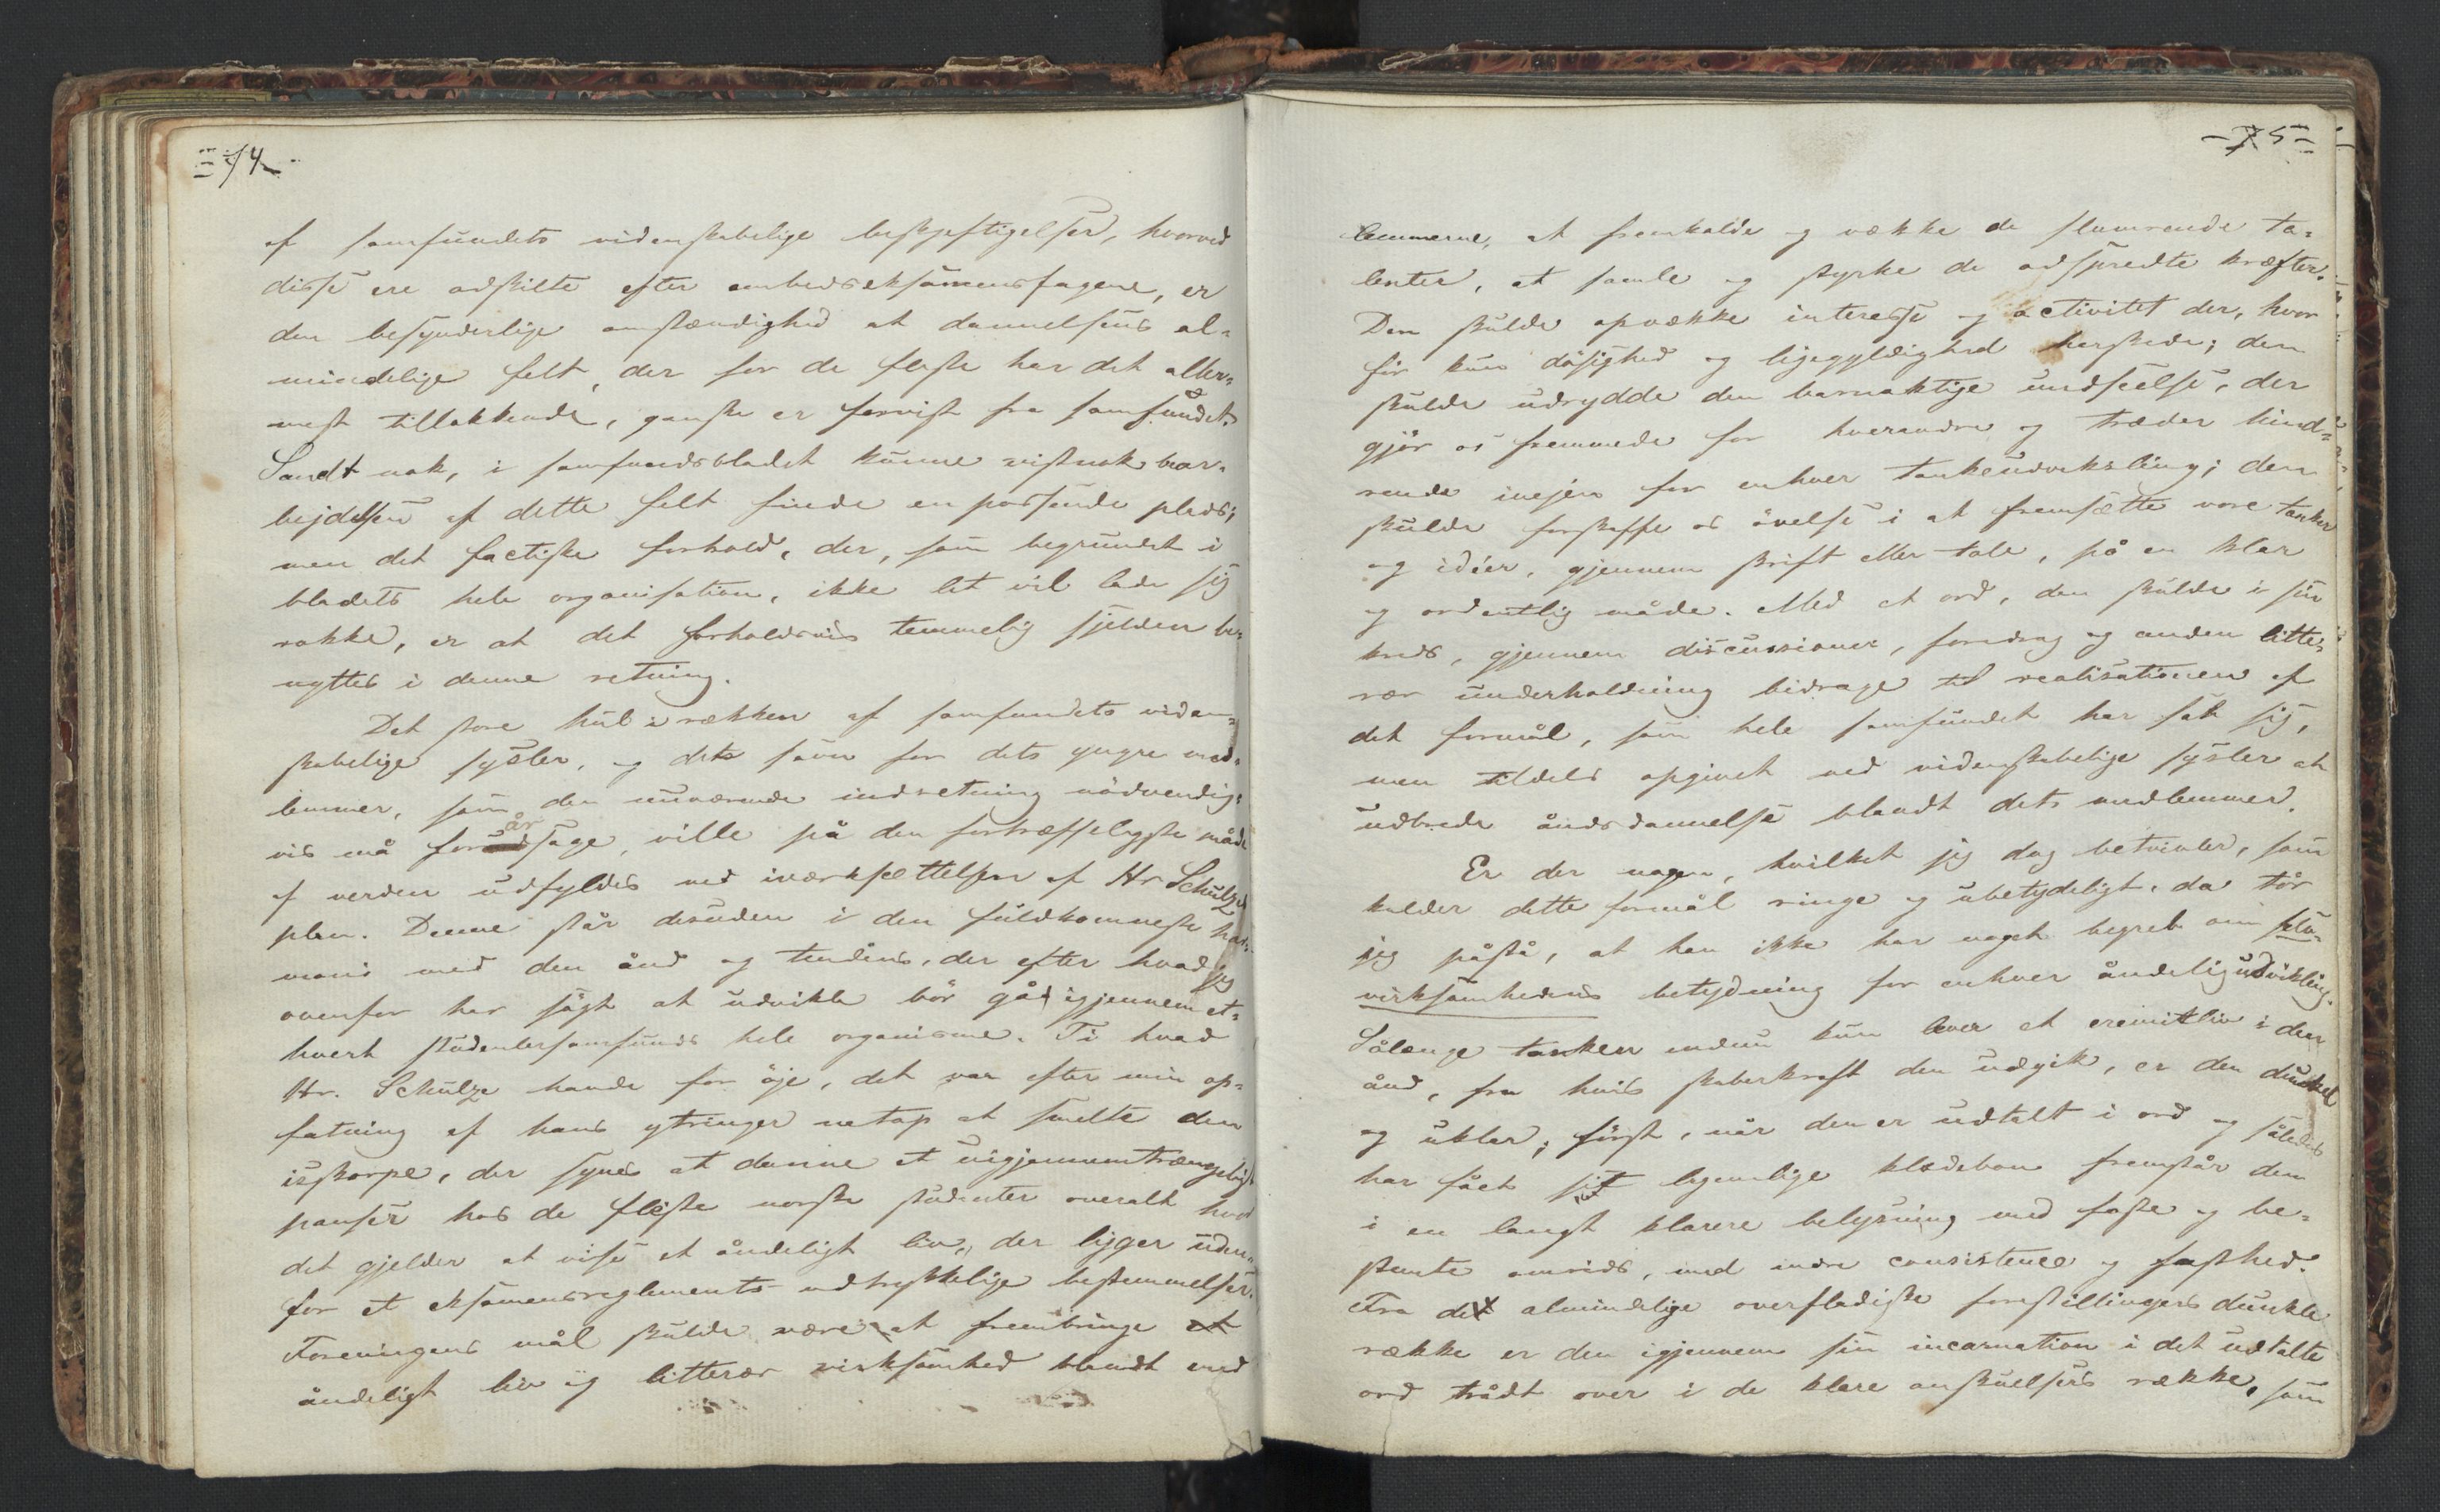 74
af samfundets videnskabelige beskjeftigelser, hvorved
disse ere adskilte efter embedseksamensfagene, er
den besynderlige omstændighed at dannelsens al-
mindelige felt, der for de fleste har det aller-
mest tillokkende, ganske er forvist fra samfundet.
Sandt nok, i samfundsbladet kunne vistnok bear-
bejdelsen af dette felt finde en passende plads;
men det factiske forhold, der, som begrundet i
bladets hele organisation, ikke let vil lade sig
rokke, er at det forholdsvis temmelig sjelden be-
nyttes i denne retning.
Det store hul i rækken af samfundets viden-
skabelige sysler, og det savn for dets yngre med-
lemmer, som den nuværende indretning nödvendig-
vis må forårsage, ville på den fortræffeligste måde
af verden udfyldes ved iværksættelsen af Hr Schulzes
plan. Denne står desuden i den fuldkomneste har-
moni med den ånd og tendens, der efter hvad jeg
ovenfor har sögt at udvikle bör gå igjennem et-
hvert studentersamfunds hele organisme. Ti hvad
Hr. Schulze havde for öje, det var efter min op-
fatning af hans ytringer netop at smelte den
isskorpe, der synes at danne et uigjennemtrængeligt
panser hos de fleste norske studenter overalt hvor
det gjelder at vise et åndeligt liv, der ligger uden-
for et eksamensreglements udtrykkelige bestemmelser.
Foreningens mål skulde være at frembringe et
åndeligt liv og litterær virksomhed blandt med
-75-
lemmerne, at fremkalde og vække de slumrende ta-
lenter, at samle og styrke de adspredte kræfter.
Den skulde opvække interesse og activitet der, hvor
för kun dösighed og ligegyldighed herskede; den
skulde udrydde den barnaktige undseelse, der
gjör os fremmede for hverandre og træder hind-
rende ivejen for enhver tankeudveksling; den
skulde forskaffe os övelse i at fremsætte vore tanker
og idéer, gjennem skrift eller tale, på en klar
og ordentlig måde. Med et ord, den skulde i sin
kreds, gjennem discussioner, foredrag og anden litte-
rær underholdning bidrage til realisationen af
det formål, som hele samfundet har sat sig,
men tildels opgivet ved videnskabelige sysler at
udbrede åndsdannelse blandt dets medlemmer.
Er der nogen, hvilket jeg dog betvivler, som
kalder dette formål ringe og ubetydeligt, da tör
jeg påstå, at han ikke har noget begreb om selv-
virksomhedens betydning for enhver åndelig udvikling.
Sålænge tanken endnu kun lever et eremitliv i den
ånd, fra hvis skaberkraft den udgik, er den dunkel
og uklar; först, når den er udtalt i ord og således
har fået sit legemlige klædebon fremstår den
i en langt klarere belysning med faste og be-
stemte omrids, med indre consistence og fasthed.
Fra de almindelige overfladiske forestillingers dunkle
række er den igjennem sin incarnation i det udtalte
ord trådt over i de klare anskuelsers række, som